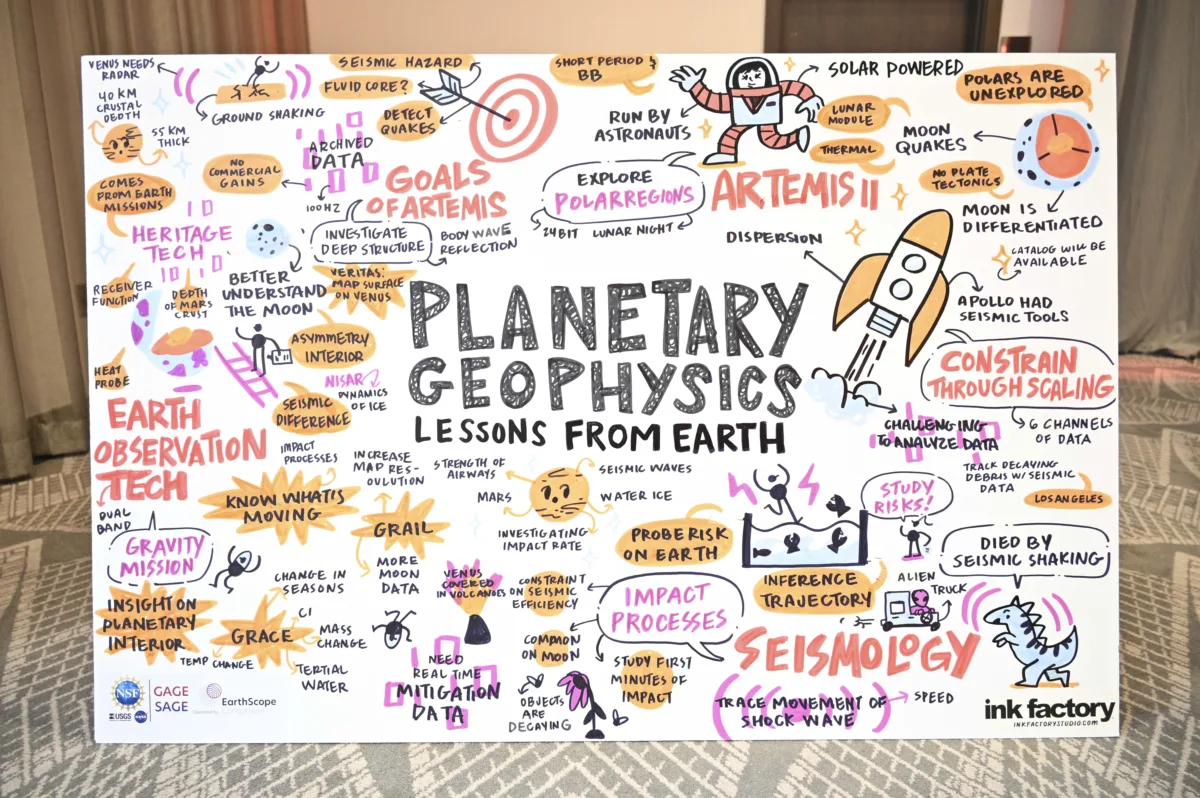 VENUS NEEDS
RADAR
40 KM
CRUSTAL
DEPTH
55 KM
THICK
GROUND SHAKING
SEISMIC HAZARD
FLUID CORE?
DETECT
QUAKES
ARCHIVED
DATA
100 HZ
NO
COMMERCIAL
GAINS
COMES
FROM EARTH
MISSIONS
HERITAGE
TECH
GOALS
OF ARTEMIS
INVESTIGATE
DEEP STRUCTURE
BODY WAVE
REFLECTION
BETTER
UNDERSTAND
THE MOON
VERITAS:
MAP SURFACE
ON VENUS
SHORT PERIOD &
BB
RUN BY
ASTRONAUTS
SOLAR POWERED
LUNAR
MODULE
THERMAL
EXPLORE
POLAR REGIONS
24 BIT
LUNAR NIGHT
ARTEMIS II
POLARS ARE
UNEXPLORED
MOON
QUAKES
NO PLATE
TECTONICS
MOON IS
DIFFERENTIATED
CATALOG WILL BE
AVAILABLE
DISPERSION
APOLLO HAD
SEISMIC TOOLS
RECEIVER
FUNCTION
DEPTH
OF MARS
CRUST
HEAT
PROBE
ASYMMETRY
INTERIOR
NISAR
DYNAMICS
OF ICE
SEISMIC
DIFFERENCE
PLANETARY
GEOPHYSICS
LESSONS FROM EARTH
CONSTRAIN
THROUGH SCALING
CHALLENGING
TO ANALYZE DATA
6 CHANNELS
OF DATA
TRACK DECAYING
DEBRIS W/ SEISMIC
DATA
LOS ANGELES
EARTH
OBSERVATION
TECH
DUAL
BAND
GRAVITY
MISSION
IMPACT
PROCESSES
KNOW WHAT IS
MOVING
INCREASE
MAP RES-
OULUTION
GRAIL
MORE
MOON
DATA
STRENGTH OF
AIRWAYS
SEISMIC WAVES
MARS
WATER ICE
INVESTIGATING
IMPACT RATE
PROBE RISK
ON EARTH
STUDY
RISKS!
DIED BY
SEISMIC SHAKING
INSIGHT ON
PLANETARY
INTERIOR
CHANGE IN
SEASONS
GRACE
CI
MASS
CHANGE
TEMP CHANGE
TERTIAL
WATER
VENUS
COVERED
IN VOLCANOES
CONSTRAINT
ON SEISMIC
EFFICIENCY
COMMON
ON MOON
IMPACT
PROCESSES
STUDY FIRST
MINUTES OF
IMPACT
INFERENCE
TRAJECTORY
ALIEN
TRUCK
SEISMOLOGY
NEED
REAL TIME
MITIGATION
DATA
OBJECTS
ARE
DECAYING
TRACE MOVEMENT OF
SHOCK WAVE
SPEED
NSF
USGS
NASA
GAGE
SAGE
EarthScope
ink factory
INKFACTORYSTUDIO.COM